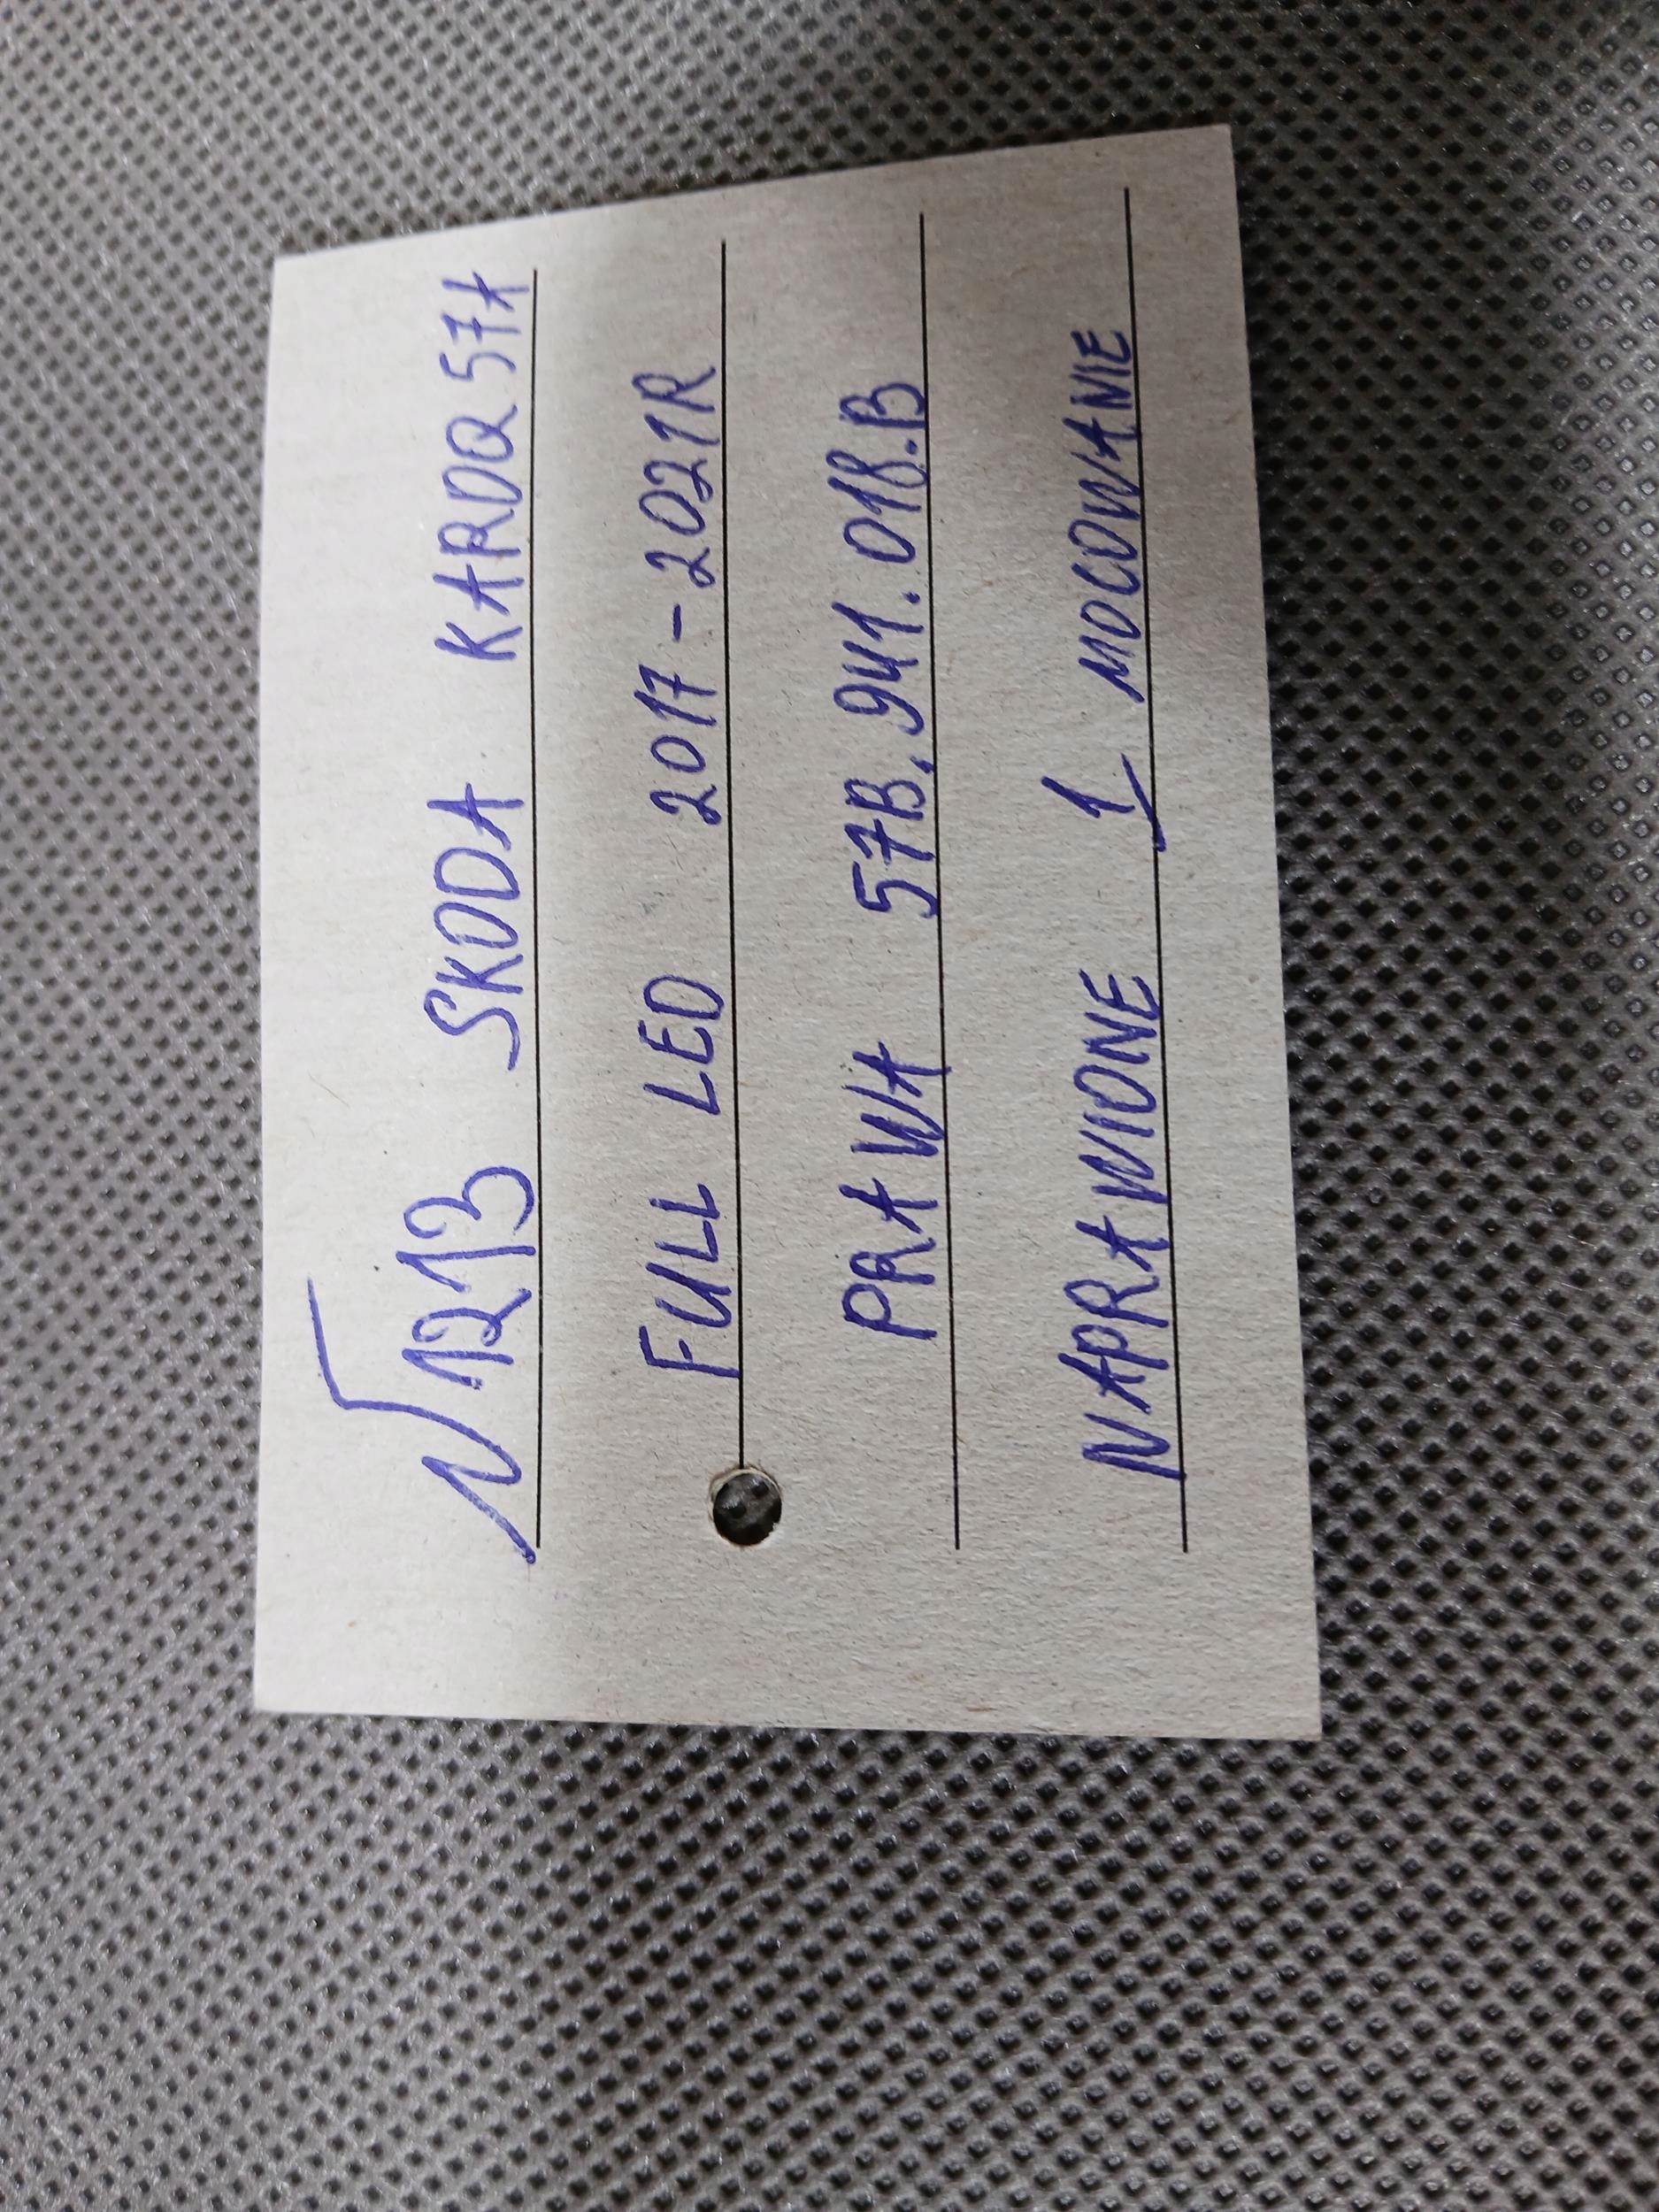 N1213 SKODA KAROQ 57A
FULL LED 2017-2021R
PRAWA 57B.941.018.B
NAPRAWIONE 1 MOCOWANIE